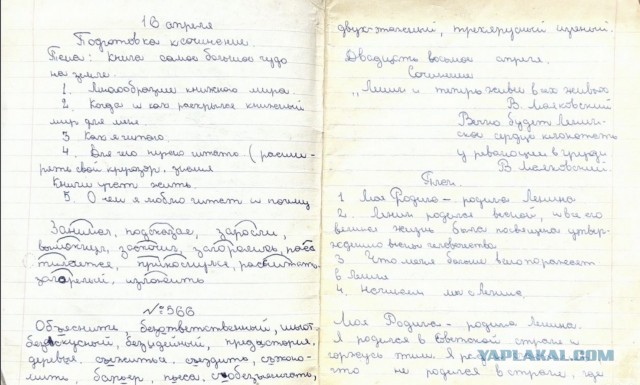 16 апреля
Подготовка к сочинению.
Тема: Книга самое большое чудо
на земле.
1. Многообразие книжного мира.
2. Когда и как раскрылся книжный
мир для меня
3 Как я читаю.
4. Для чего нужно читать (расши-
рять свой кругозор, знания
Книги учат жить.
5. О чем я люблю читать и почему
Занимая, подсказав, заросли,
загорелась,
прикоснулся, рассчитать
загорелый, изложить
№ 566
Объясните, безответственный,
безвкусный, безыдейный, предыстория,
деревья, съежиться, съездить, сэконо-
мить, барьер, пьеса, обезьянничать,
двух-этажный, трехярусный
Двадцать восьмое апреля.
Сочинение
„Ленин и теперь живее всех живых
В. Маяковский
Вечно будет Ленин-
ское сердце клокотать
у революции в груди
В. Маяковский.
План.
1 Моя Родина – родина Ленина
2. Ленин родился весной, и вся его
жизнь была посвящена утвер-
ждению весны человечества
3. Что меня больше всего поражает
в Ленине
4. Начинаем с Ленина.
Моя Родина – родина Ленина.
Я родился в Советской стране и
горжусь этим. Я
что не родился в стране, где
YAPLAKAL.COM